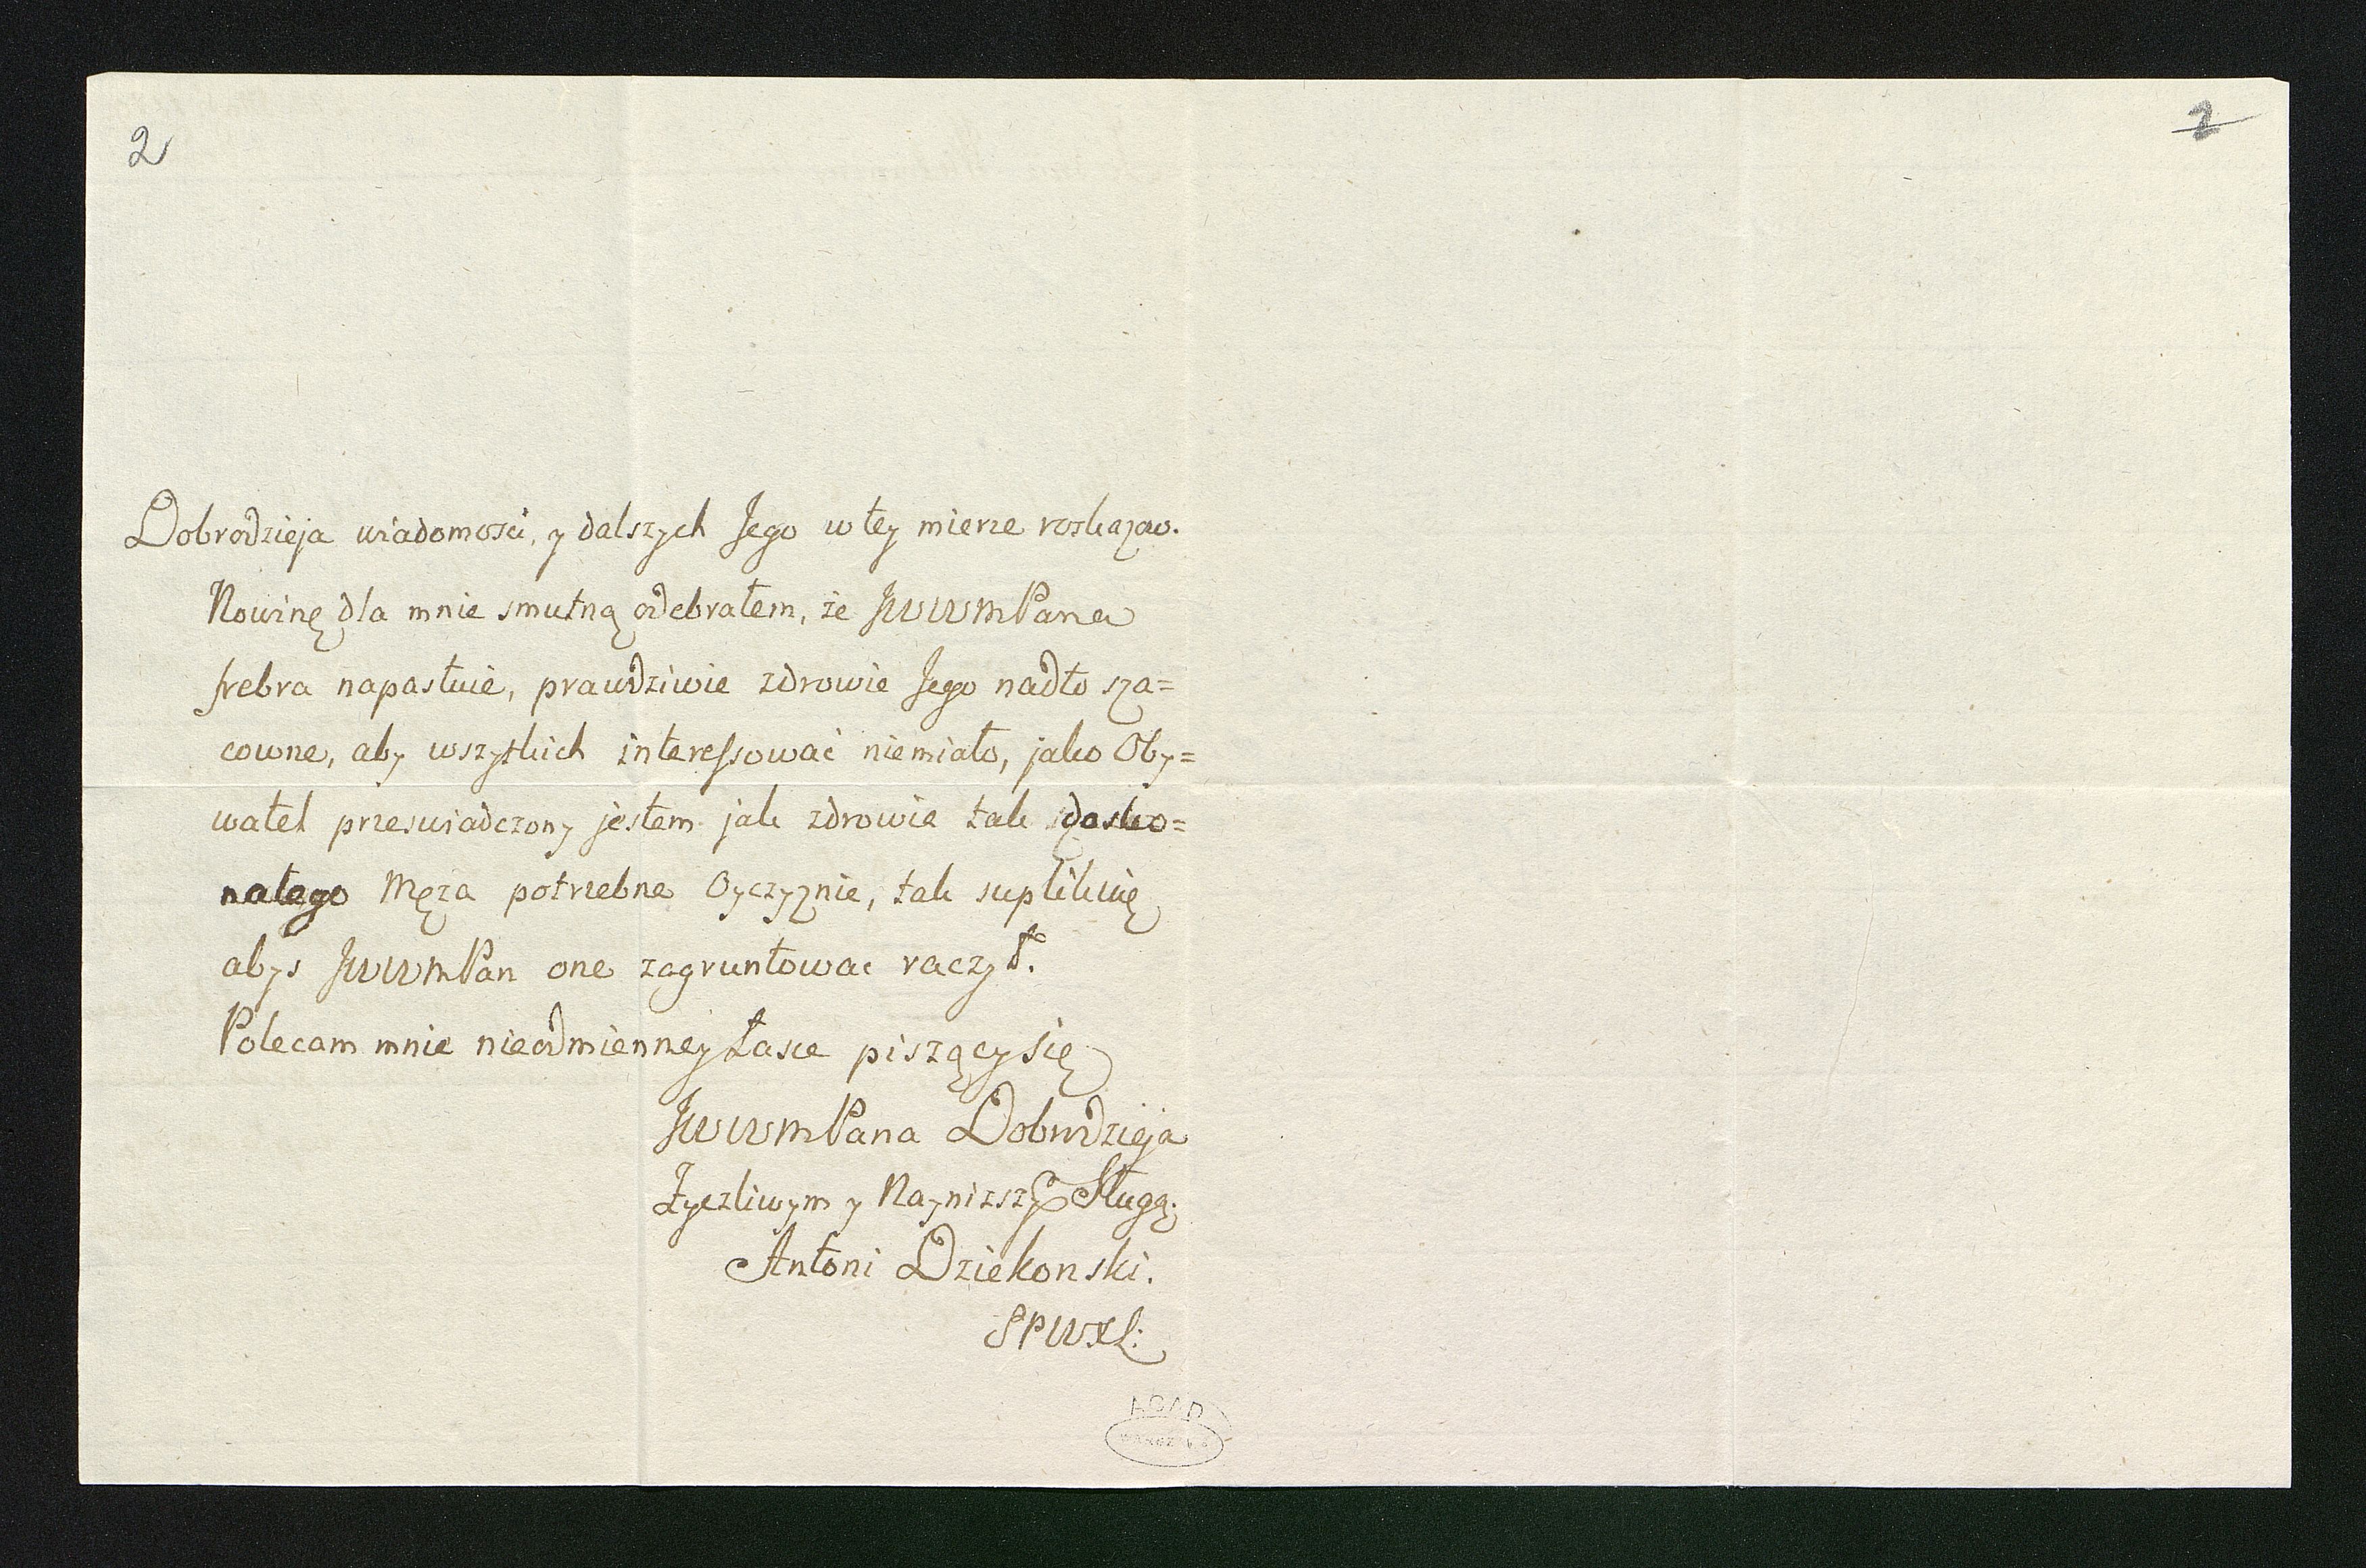 2
2
Dobrodzieja wiadomosci, y dalszych Jego w tey mierze roskazow.
Nowinę dla mnie smutną odebrałem, że JWWMPana
febra napastuie, prawdziwie zdrowie Jego nadto sza=
cowne, aby wszystkich interessować niemiało, jako Oby=
watel przeswiadczony jestem jak zdrowie tak dosko=
nałego Męża potrzebne Oyczyznie, tak supplikuię
abys JWWMPan one zagruntowac raczył.
Polecam mnie nieodmienney Łasce piszący się
JWWMPana Dobrodzieja
Życzliwym y Naynizszym Sługą.
Antoni Dziekonski.
SPWXL:
AGAD
WARSZAWA